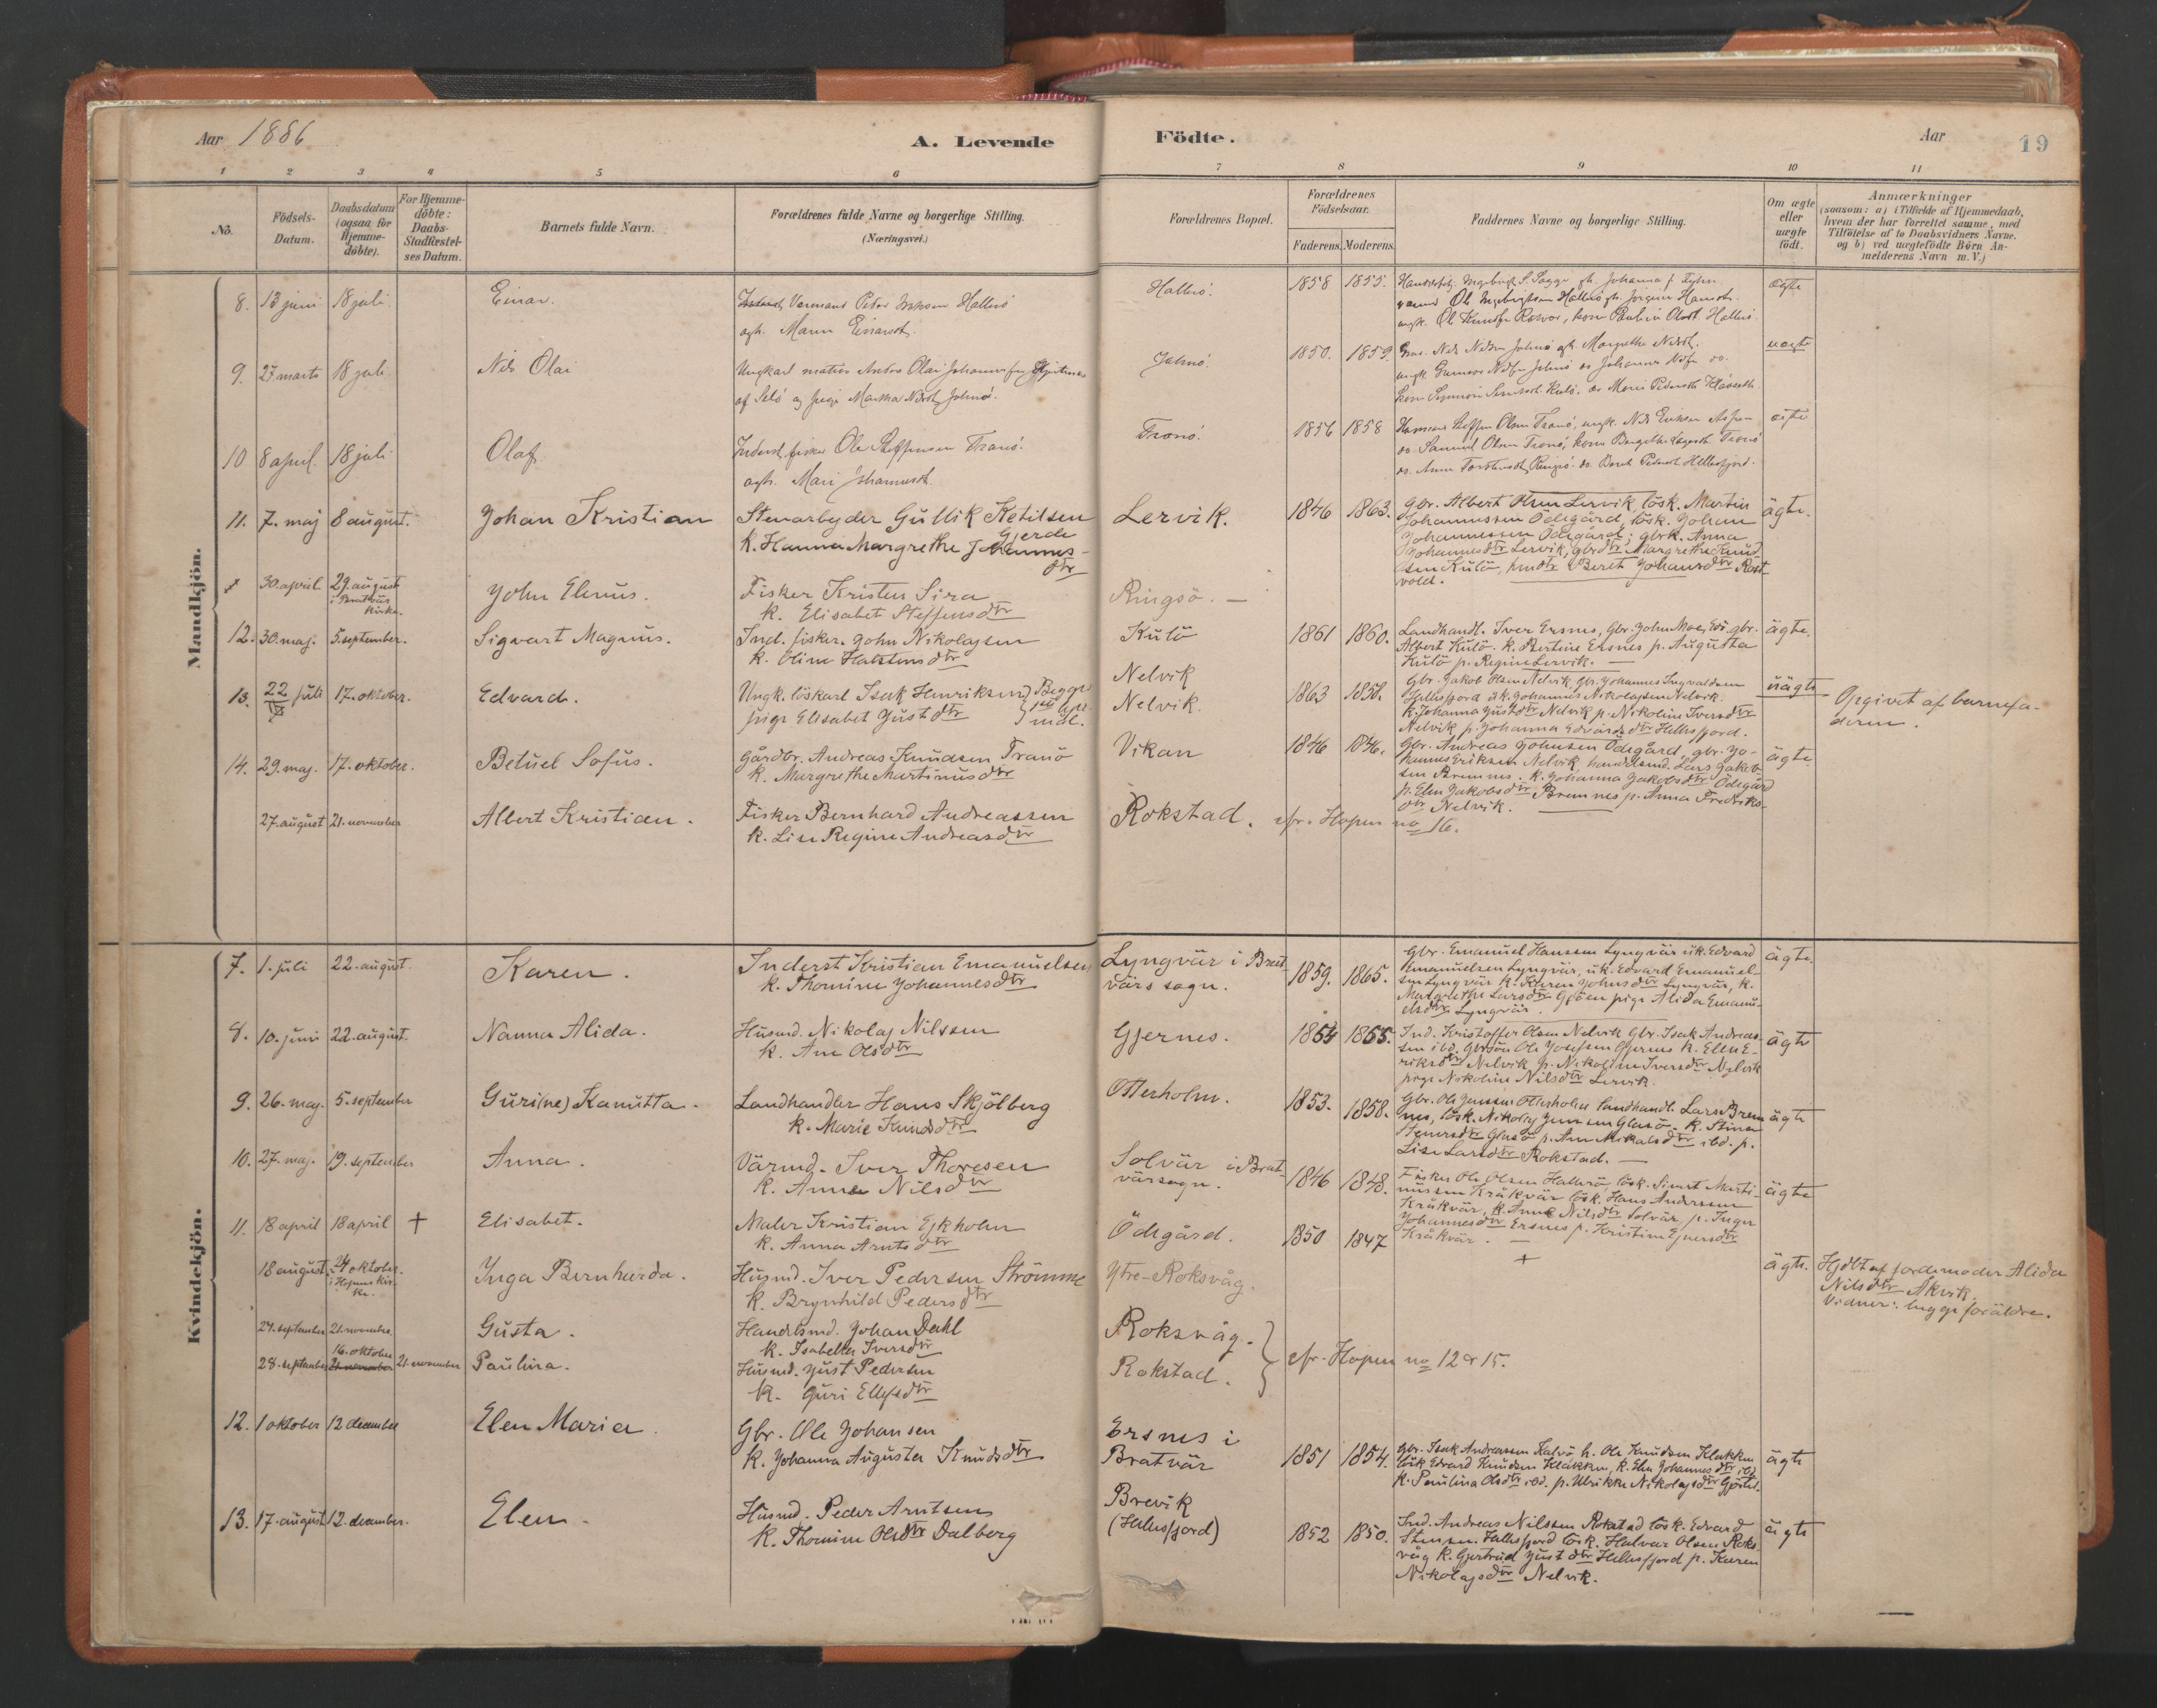 Aar 1886
A. Levende Födte.
Aar
19
1 2 3 4 5 6 7 8 9 10 11
No.
Födsels-
Datum.
Daabsdatum
(ogsaa for
Hjemme-
døbte).
For Hjemme-
döbte:
Daabs-
Stadfæstel-
ses Datum.
Barnets fulde Navn.
Forældrenes fulde Navne og borgerlige Stilling.
(Næringsvei.)
Forældrenes Bopæl.
Forældrenes
Födselsaar.
Faderens. Moderens.
Faddernes Navne og borgerlige Stilling.
Om ægte
eller
uægte
födt.
Anmærkninger
(saasom: a) i Tilfælde af Hjemmedaab,
hvem der har forrettet samme, med
Tilföielse af to Daabsvidners Navne.
og b) ved uægtefödte Börn An-
melderens Navn m. V.)
Mandkjön.
8. 13 juni 18 juli. Einar.
Peder Hallnö
Hallnö. 1858 1855.
ægte
9. 27 marts 18 juli Nils Olai
Ungkarl Olai
1850. 1859.
uægte
10 8 april. 18 juli Olaf.
Inderst, fisker Ole Steffensen Tranö.
Tranö. 1856 1858
11. 7. maj 8 august. Johan Kristian
Stenarbejder Gullik Ketilsen
Gjerde
k. Hanna Margrethe Johannes-
dtr
Lervik. 1846 1863.
Gbr. Albert Olsen Lervik, lösk. Martin
Johannessen Ödegård, lösk. Johan
Johannessen Ödegård; gbrk. Anna
Johannesdtr Lervik, gbrdtr Margrethe Knud
sen Kulö, Beret Johansdtr Rost-
vold.
ägte.
30. april. 29. august
i Bratvär
kirke.
John Elenus.
Fisker Kristen Sira
k. Elisabet Steffensdtr
Ringsö. —
12. 30. maj. 5. september. Sigvart Magnus.
Ind. fisker. John Nikolajsen
k. Oline Halstensdtr
Kulö 1861 1860.
Landhandl. Iver Ersnes, Gbr. John Moe, gbr.
Albert Kulö. k. Bertine Ersnes p. Augusta
Kulö p. Regine Lervik. —
ägte.
13. 22 juli 17. oktober. Edvard.
Ungk. löskarl Isak Henriksen
pige Elisabet Justdtr
Begge
Nelvik
Nelvik. 1863 1858.
Gbr. Jakob Olsen Nelvik, gbr. Johannes Ingvaldsen
Hellesfjord uk. Johannes Nikolajsen Nelvik.
k. Johanna Justdtr Nelvik p. Nikoline Iversdtr
Nelvik p. Johanna Edvardsdtr Hellesfjord.
uägte
Opgivet af barnefa-
deren.
14. 29. maj. 17. oktober. Betuel Sofus.
Gårdbr. Andreas Knudsen Tranö
k. Margrethe Martinusdtr
Vikan 1846 1846.
Gbr. Andreas Johnsen Ödegård, gbr. Jo-
hannes Eriksen Nelvik, handelsmd. Lars Jakob-
sen Bremnes. k. Johanna Jakobsdtr Ödegård
p. Elen Jakobsdtr Bremnes p. Anna Fredriks-
dtr Nelvik.
ägte.
27. august 21. november Albert Kristian.
Fisker Bernhard Andreassen
k. Lise Regine Andreasdtr
Rokstad. cfr. Hopen no 16.
Kvindekjön.
7. 1. juli 22. august. Karen.
Inderst Kristian Emanuelsen
k. Thomine Johannesdtr
Lyngvär i Brat
värs sogn. 1859. 1865.
Gbr. Emanuel Hanssen Lyngvär uk. Edvard
Emanuelsen Lyngvär, uk. Edvard Emanuel-
sen Lyngvär k. Karen Johnsdtr Lyngvär, k.
Margrethe Larsdtr Gjöen pige Alida Emanu-
elsdtr Lyngvär.
ägte.
8. 10. juni 22. august. Nanna Alida.
Husmd. Nikolaj Nilssen
k. Ane Olsdtr
Gjernes. 1854 1855.
Ind. Kristoffer Olsen Nelvik Gbr. Isak Andreas-
sen ibd. Gbrsön Ole Josefsen Gjernes k. Elen E-
riksdtr Nelvik p. Nikoline Iversdtr Nelvik
pige Nikoline Nilsdtr Lervik.
ägte
9. 26. maj. 5. september Guri(ne) Kanutta.
Landhandler Hans Skjölberg
k. Marie Knudsdtr
Otterholm. 1853. 1858.
Gbr. Ole Jenssen Otterholm landhandl. Lars Brem
nes, lösk. Nikolaj Jenssen Glasö. k. Stina
Steversdtr Glasö p. Ane Mikalsdtr ibd. p.
Lise Larsdtr Rokstad. —
ägte
10. 27. maj. 19. september Anna.
Värmd. Iver Thoresen
k. Anne Nilsdtr
Solvär i Brat
värsogn. 1846 1848.
Fisker Ole Olsen Hallarö lösk. Sivert Marti-
nussen Kråkvär lösk. Hans Anderssen
Kråkvär, k. Anne Nilsdtr Solvär p. Inger
Johannesdtr Ersnes p. Kristine Ejnersdtr
Kråkvär. —
ägte
11. 18 april 18 april + Elisabet.
Maler Kristian Ejkholm
k. Anna Arntsdtr
Ödegård. 1850 1847
+
ägte. Hjdbt af jordemoder Alida
Nilsdtr Akvik.
Vidner: begge foräldre.
18 august. 24 oktober.
i Hopens kir-
ke.
Inga Bernharda.
Husmd. Iver Pedersen Strömme
k. Brynhild Pedersdtr
Ytre-Roksvåg.
24. september 21. november. Gusta.
Handelsmd. Johan Dahl
k. Isabella Iversdtr
Roksvåg.
28. september 16. oktober
21 november 21. november Paulina.
Husmd. Just Pedersen
k. Guri Ellefsdtr
Rokstad.
cfr. Hopen no 12 & 15.
12. 1 oktober 12 december Elen Maria.
Gbr. Ole Johansen
k. Johanna Augusta Knudsdtr
Ersnes i
Bratvär 1851 1854.
Gbr. Isak Andreassen Kalvö h. Ole Knudsen Klakken
lösk Edvard Knudsen Klakken, k. Elen Johannesdtr ibd
k. Paulina Olsdtr ibd. p. Ulrikke Nikolajsdtr
ägte
13. 17. august 12. december. Elen.
Husmd. Peder Arntsen
k. Thomine Olsdtr Dalberg
Brevik
(Hellesfjord) 1852 1850.
Ind. Andreas Nilssen Rokstad lösk. Edvard
Stensen. Hellesfjord lösk. Halvar Olsen Roks
våg k. Gjertrud Justdtr Hellesfjord p. Karen
Nikolajsdtr Nelvik.
ägte